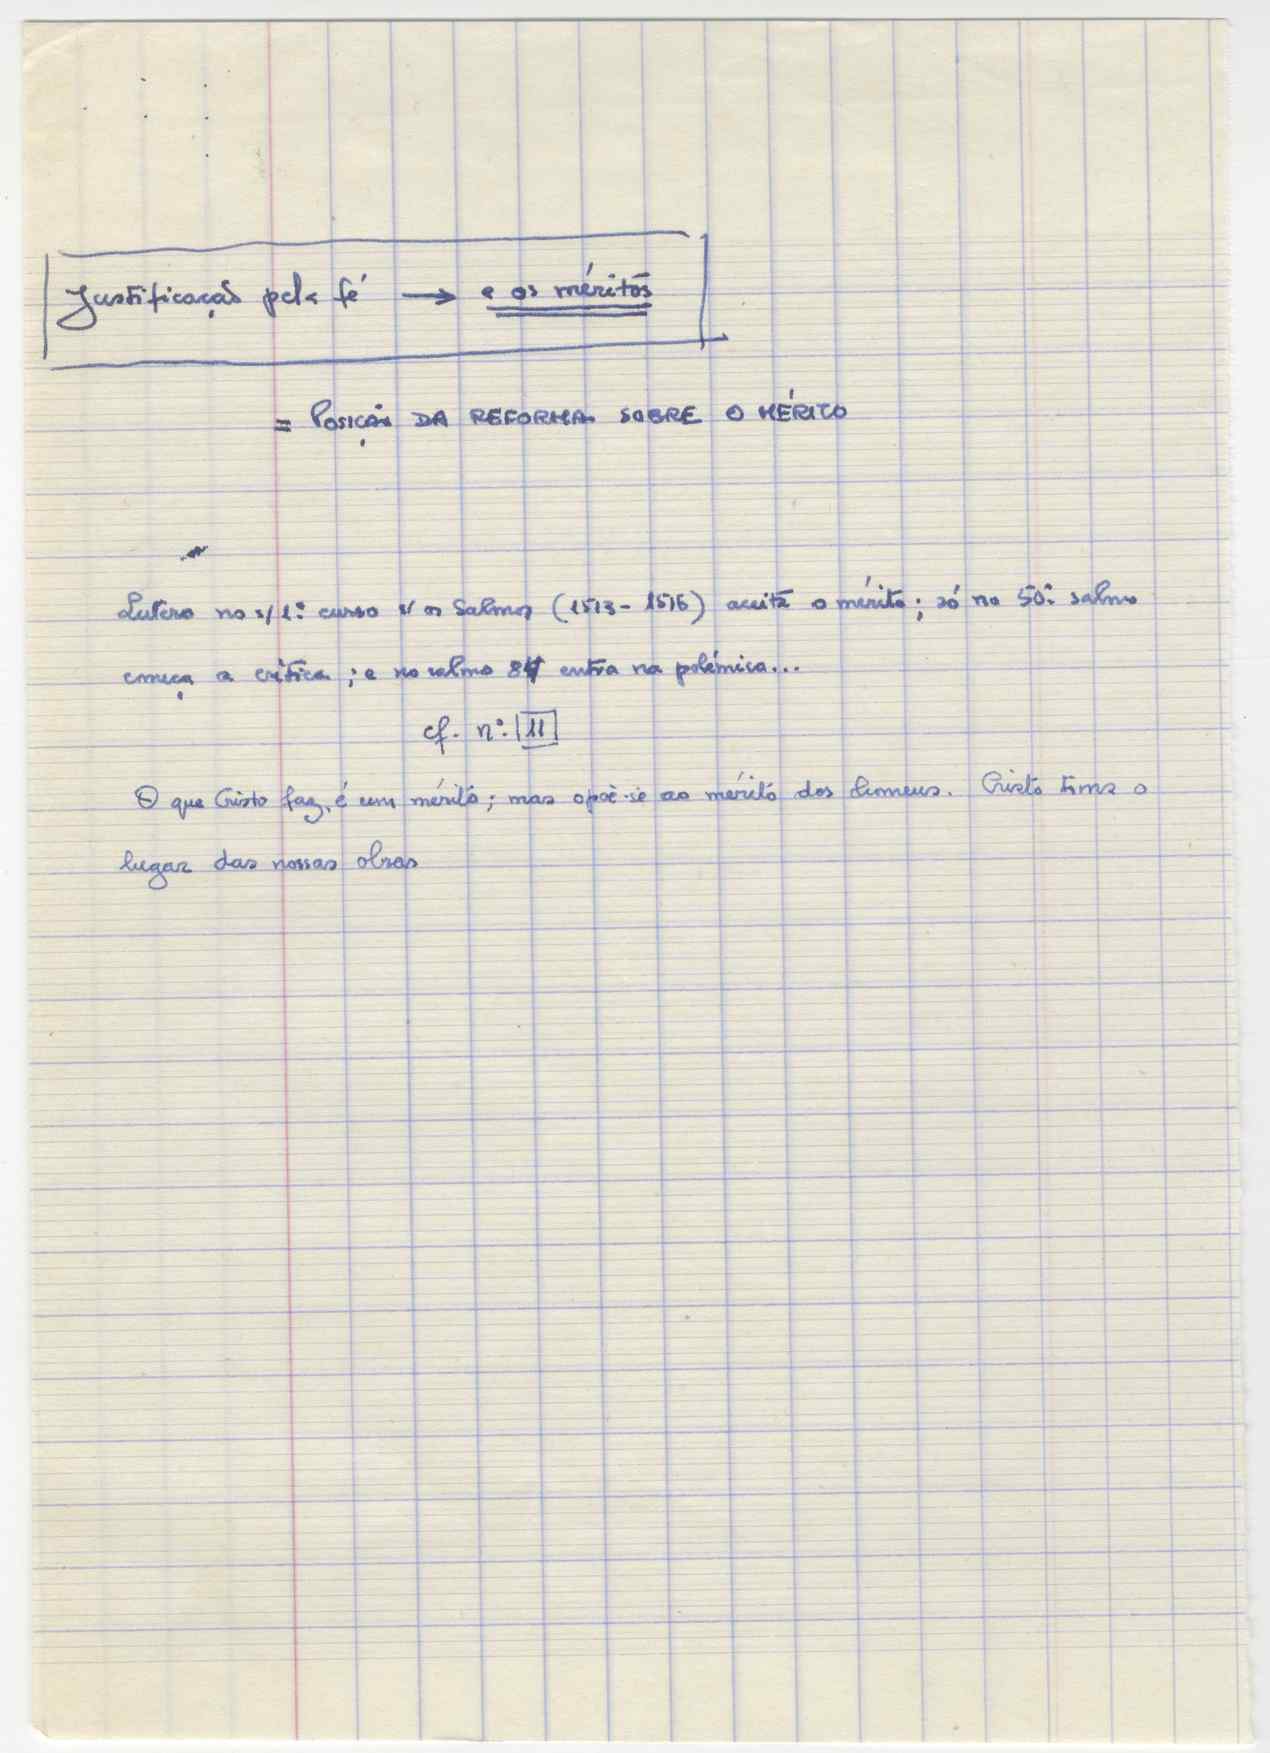 Justificação pela fé → e os méritos
= Posição DA REFORMA SOBRE O MÉRITO
Lutero no s/ 1º curso s/ os Salmos (1513-1516) aceita o mérito; só no 50º salmo
começa a crítica; e no salmo 84 entra na polémica...
cf. nº 11
O que Cristo faz, é um mérito; mas opoē-se ao mérito dos homens. Cristo toma o
lugar das nossas obras